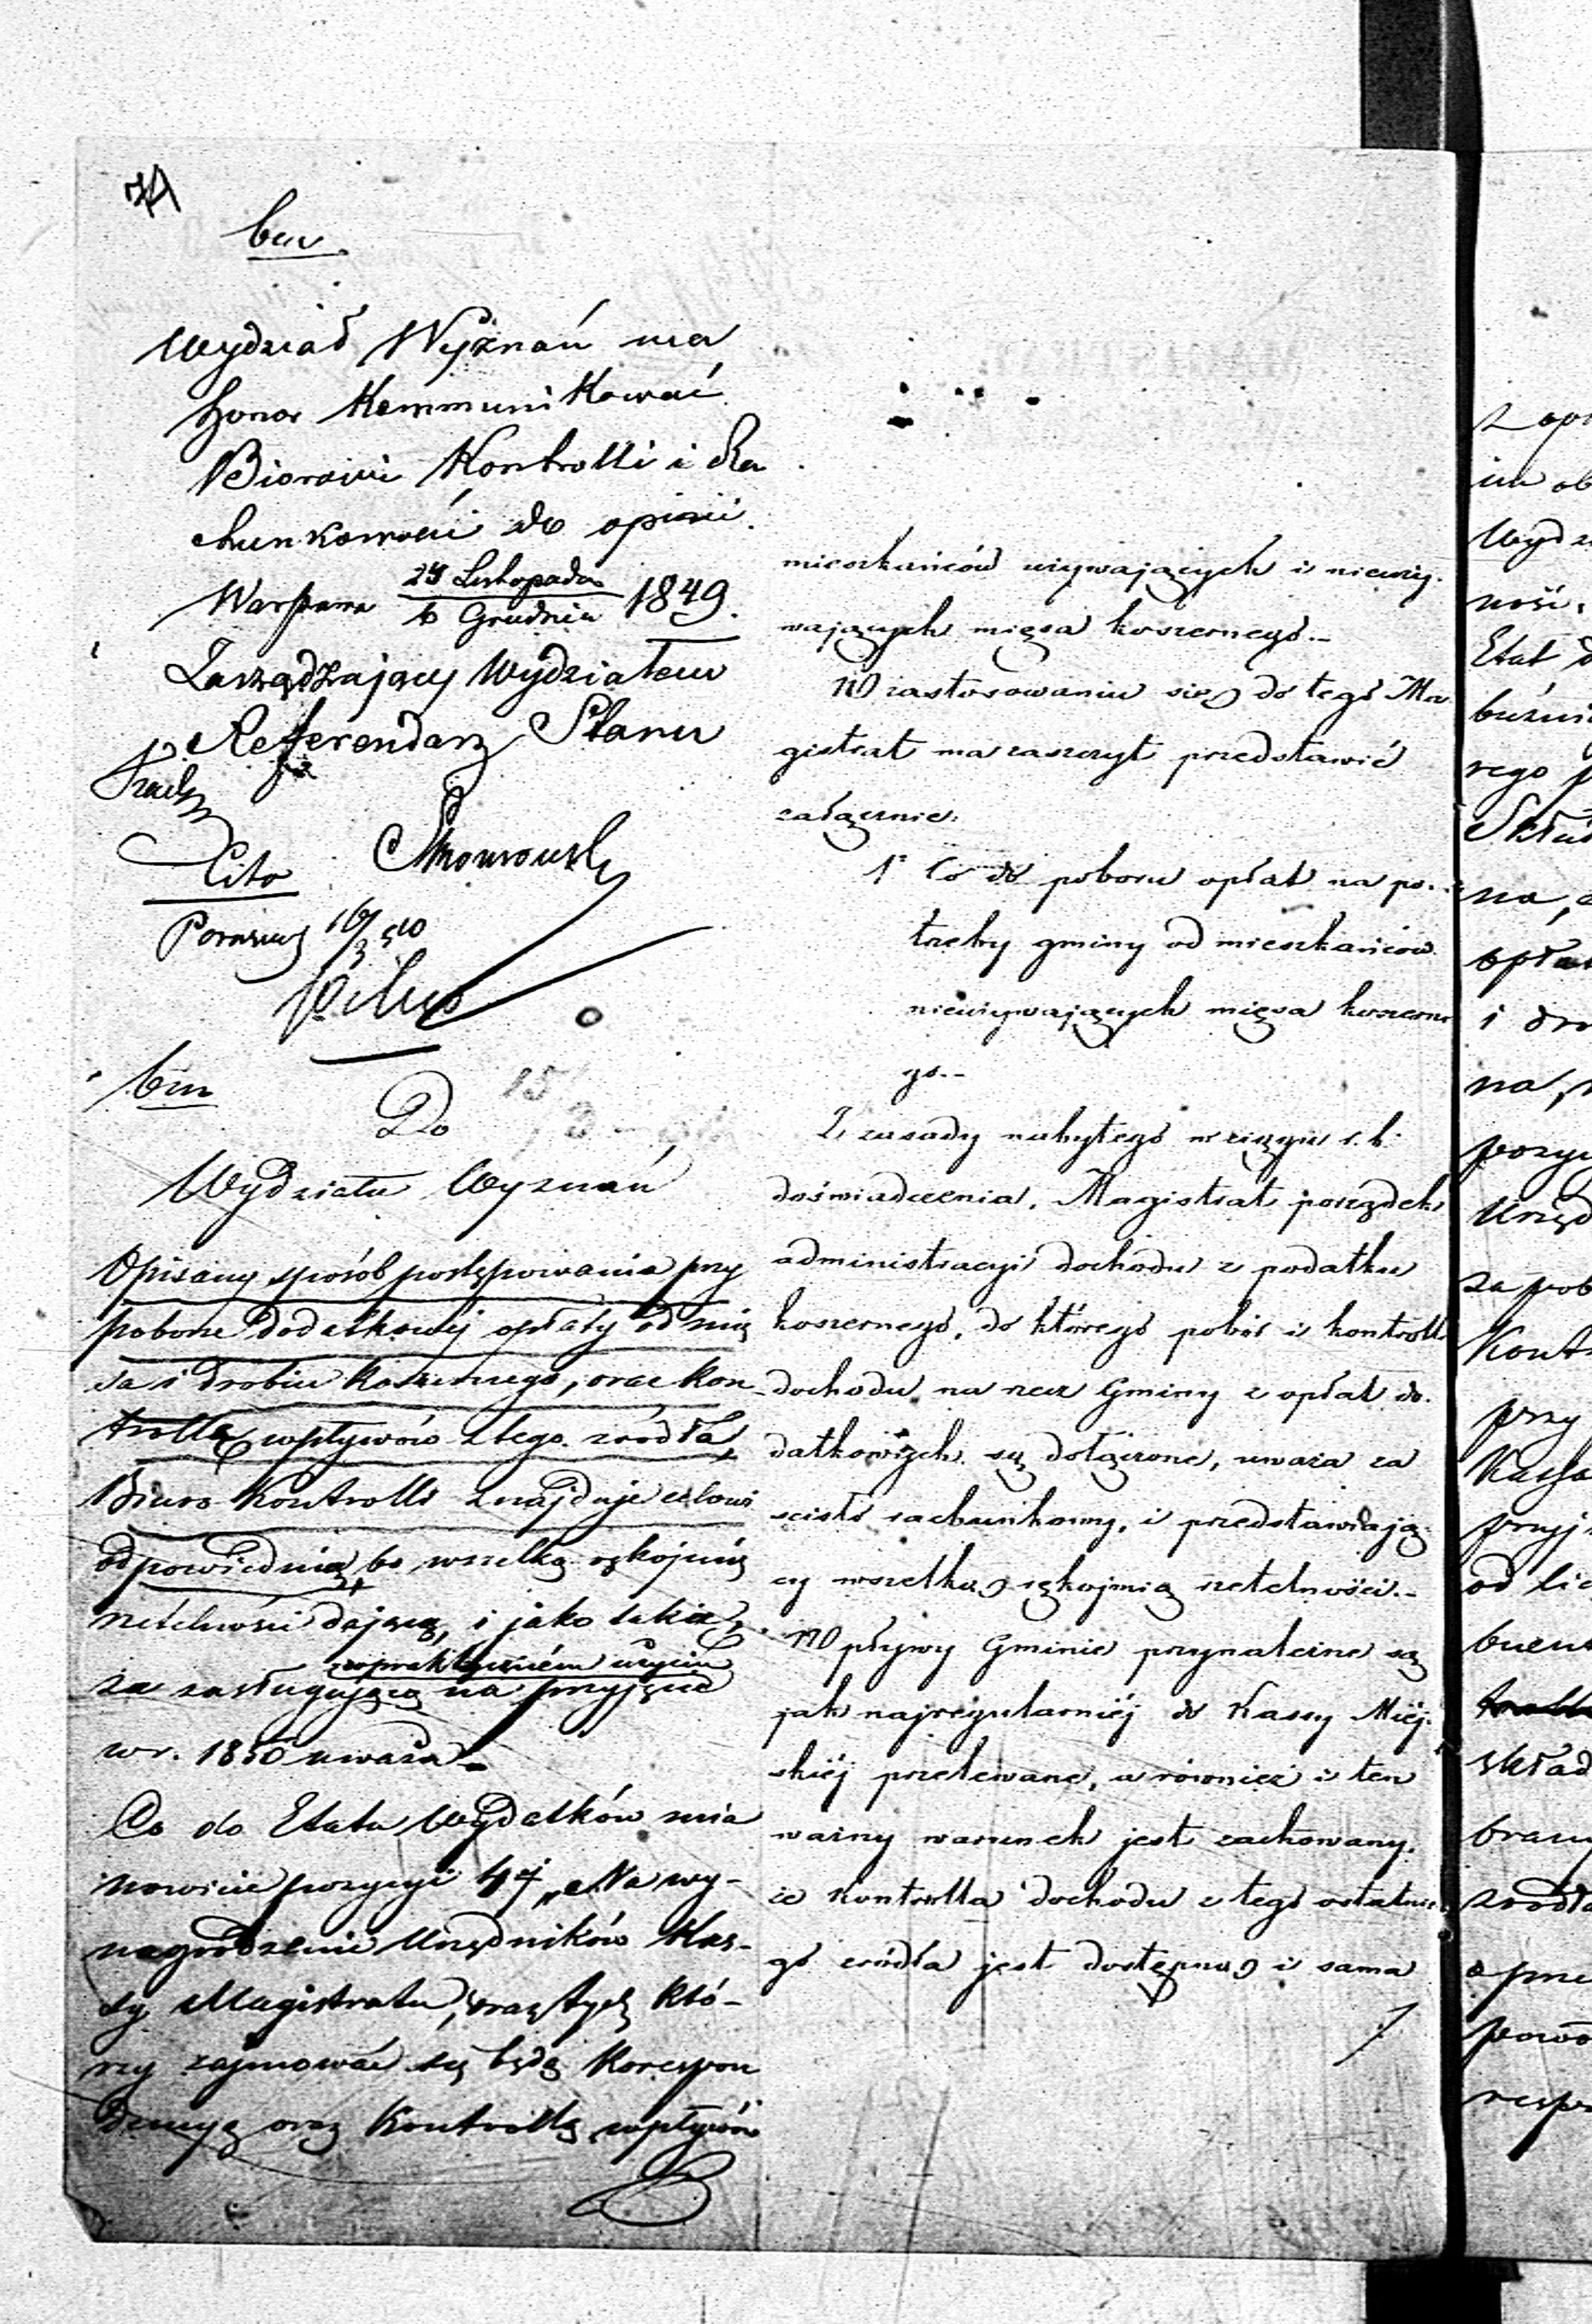 74
bm.
Wydział Wyznań ma
honor Kommunikować
Biorowi Kontrolli i Ra
chunkowości do opinii.
Warszawa 24 Listopada / 6 Grudnia 1849.
Zarządzający Wydziałem
Referendarz Stanu
Cito
bm
Do
Wydziału Wyznań
Opisany sposób postępowania przy
poborze dodatkowej opłaty od mię
sa i drobiu koszernego, oraz kon
trollę wpływów z tego źródła,
Biuro Kontrolli znajduje celowi
odpowiednią, bo wszelką rękojmię
rzetelności dającą, i jako takie,
w praktyczném użyciu
za zasługującą na przyjęcie
w r. 1850 uważa.
Co do Etatu Wydatków mia
nowicie pozycyi 44 „Na wy-
nagrodzenie Urzędników Kas-
sy Magistratu, oraz tych, któ-
rzy zajmować się będą Korespon
dencyą oraz Kontrollą wpływów
mieszkańców używających i nieuży-
wających mięsa koszernego.-
W zastosowaniu się do tego Ma
gistrat ma zaszczyt przedstawić
załącznie:
1° Co do poboru opłat na po-
trzeby gminy od mieszkańców
nieużywających mięsa koszerne
go.-
Z zasady nabytego w ciągu r. b.
doświadczenia, Magistrat porządek
administracyi dochodu z podatku
koszernego, do którego pobór i kontroll
dochodu na rzecz Gminy z opłat do-
datkowych są dołączone, uważa za
ścisło rachunkowy, i przedstawiają-
cy wszelką rękojmię rzetelności.-
Wpływy Gminie przynależne są
jak najregularniéj do Kassy Miej-
skiéj przelewane, a również i ten
ważny warunek jest zachowany,
że kontrolla dochodu z tego ostatnie
go źródła jest dostępną i sama